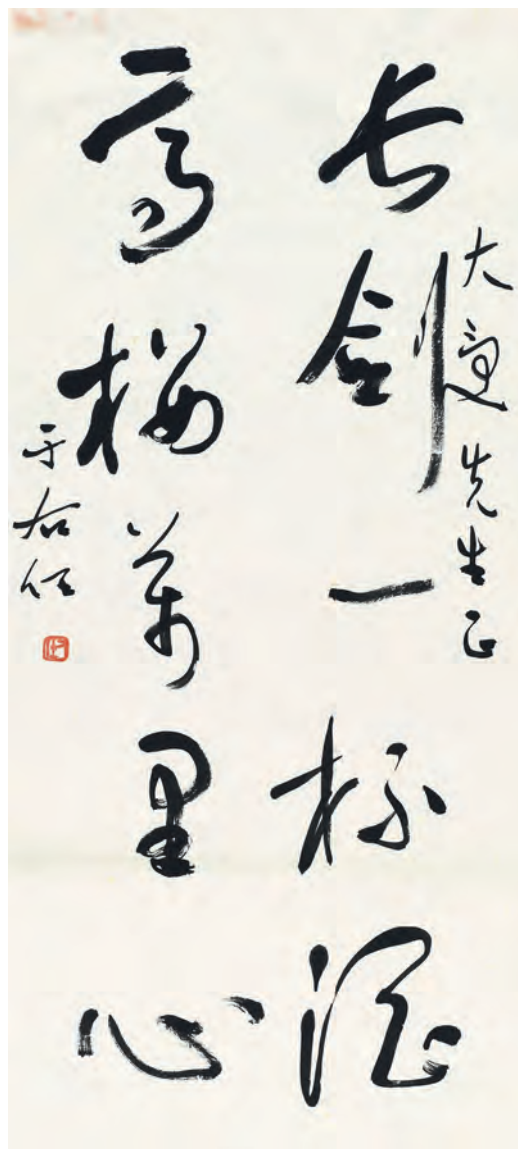 大先生正
長劍一杯酒
高樓萬里心
于右任